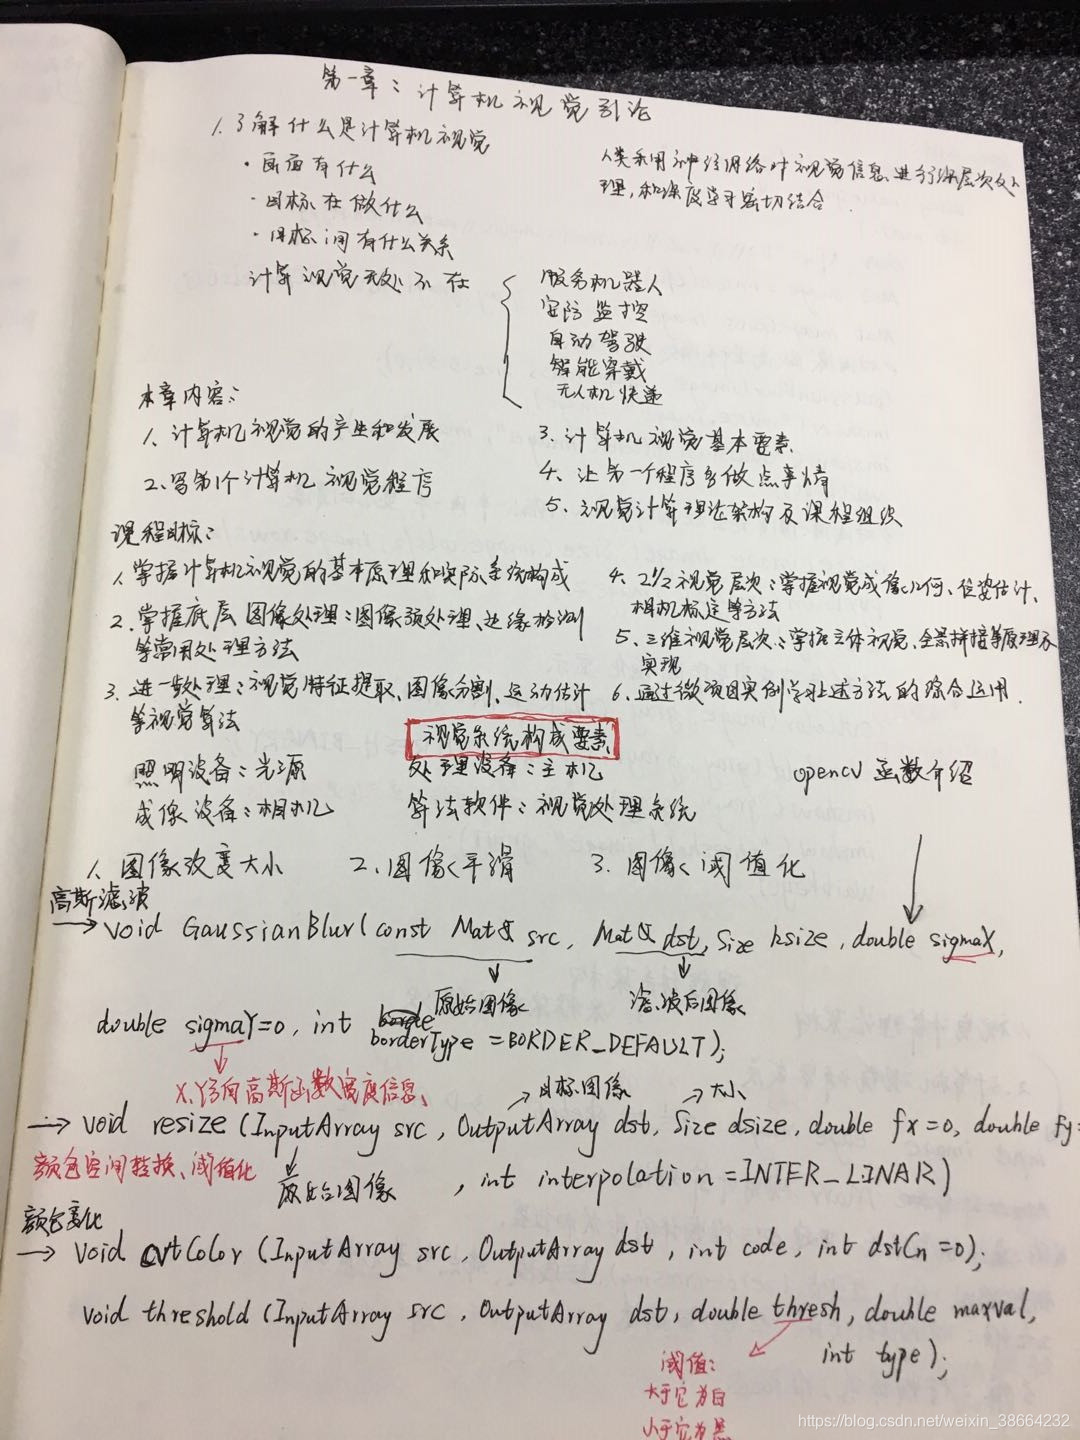 第一章：计算机视觉引论
1.了解什么是计算机视觉
·画面有什么
·目标在做什么
·目标间有什么关系
人类采用神经网络对视觉信息进行深层次处
理,和深度学习密切结合.
计算视觉无处不在
服务机器人
安防监控
自动驾驶
智能穿戴
无人机快递
本章内容：
1、计算机视觉的产生和发展
2、写第1个计算机视觉程序
3.计算机视觉基本要素
4、让第一个程序多做点事情
5、视觉计算理法架构及课程组织
课程目标：
1、掌握计算机视觉的基本原理和实际系统构成
2、掌握底层图像处理：图像预处理、边缘检测
等常用处理方法
3.进一步处理：视觉特征提取、图像分割、运动估计
等视觉算法
4、21/2视觉层次：掌握视觉成像几何、位姿估计、
相机标定等方法
5、三维视觉层次：掌握立体视觉、全景拼接等原理及
实现
6、通过微项目实例学习上述方法的综合运用.
视觉系统构成要素
照明设备：光源
处理设备：主机
成像设备：相机
算法软件：视觉处理系统
opencv 函数介绍
1、图像改度大小 2、图像平滑 3.图像阈值化
高斯滤波
→void GaussianBlur(const Mat& src, Mat& dst, Size ksize, double sigmaX,
原始图像 滤波后图像
double sigmaY=0, int borderType=BORDER_DEFAULT);
X、Y方向高斯函数宽度信息、
目标图像 大小
→void resize(InputArray src, OutputArray dst, Size dsize, double fx=0, double fy=
颜色空间转换、阈值化
原始图像
, int interpolation=INTER_LINAR)
颜色变化
→void cvtColor(InputArray src, OutputArray dst, int code, int dstCn=0);
void threshold(InputArray src, OutputArray dst, double thresh, double maxval,
int type);
阈值：
大于它为白
小于它为黑
https://blog.csdn.net/weixin_38664232